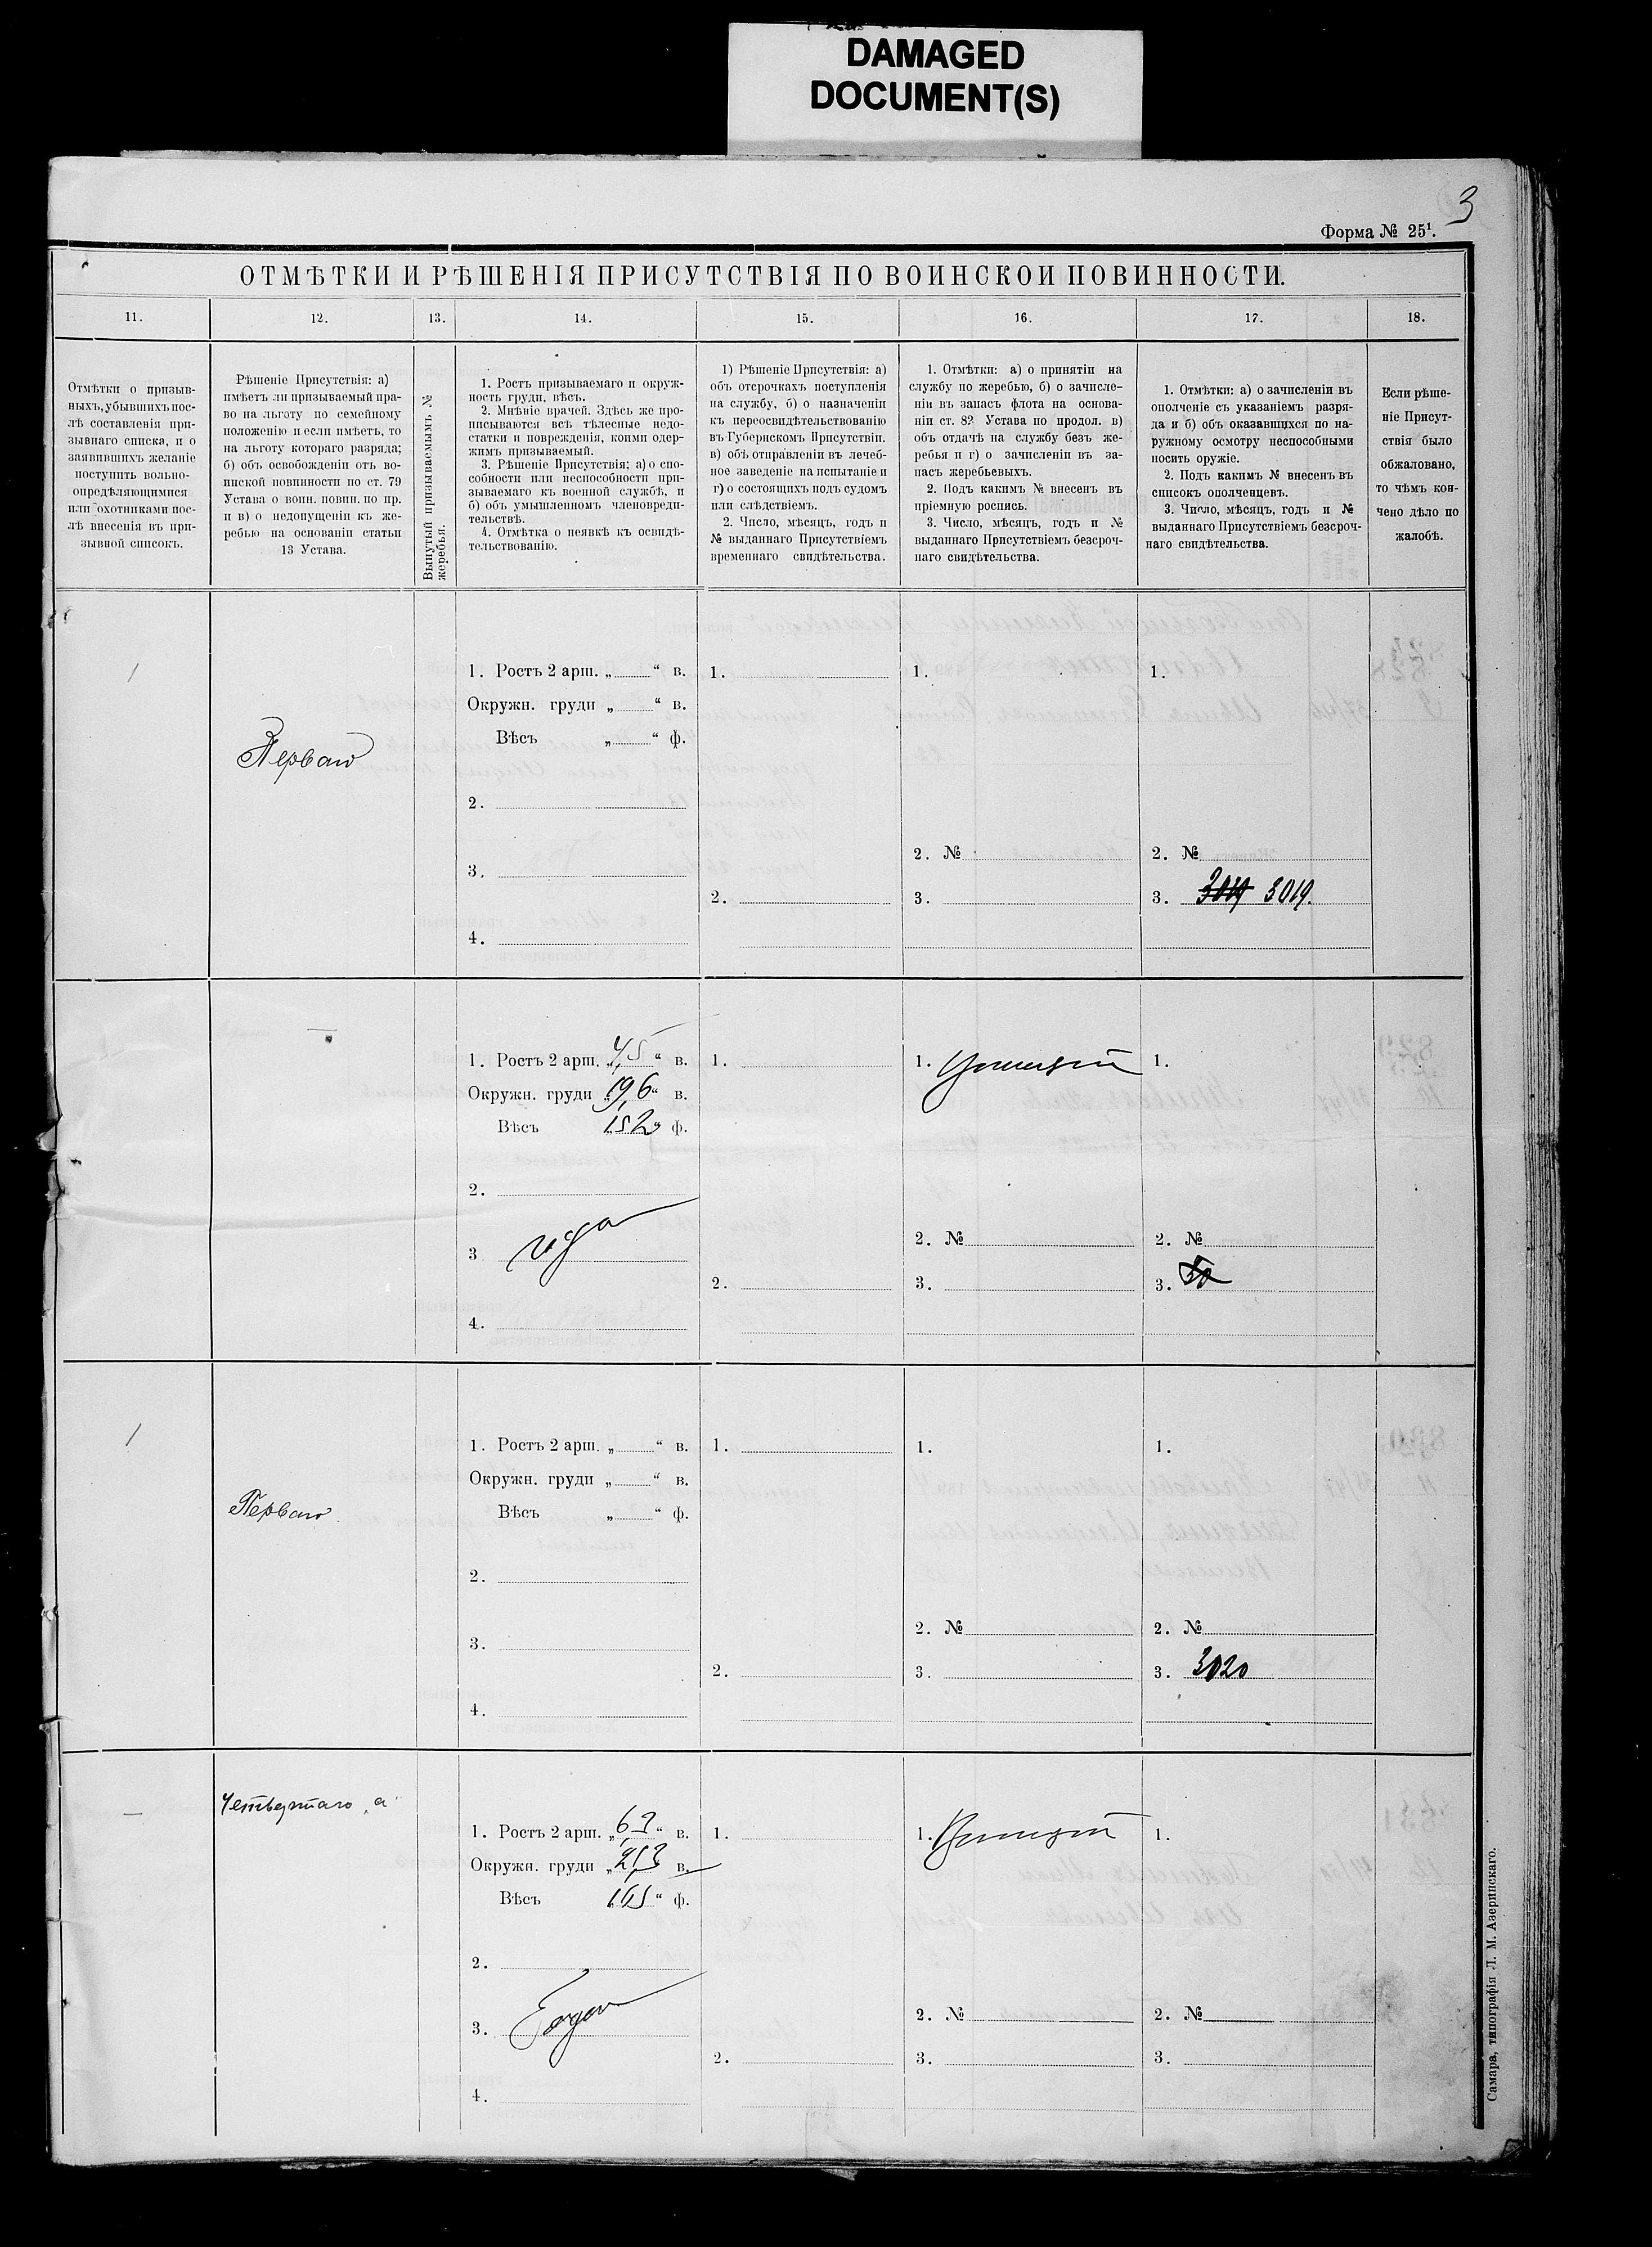 DAMAGED
DOCUMENT(S)
3
Форма № 25¹.
ОТМѢТКИ И РѢШЕНІЯ ПРИСУТСТВІЯ ПО ВОИНСКОИ ПОВИННОСТИ.
11.
12.
13.
14.
15.
16.
17.
18.
Отмѣтки о призыв-
ныхъ, убывшихъ пос-
лѣ составленія при-
зывнаго списка, и о
заявившихъ желаніе
поступить вольно-
опредѣляющимися
или охотниками пос-
лѣ внесенія въ при-
зывной списокъ.
Рѣшеніе Присутствія: а)
имѣетъ ли призываемый пра-
во на льготу по семейному
положенію и если имѣетъ, то
на льготу котораго разряда;
б) объ освобожденіи отъ во-
инской повинности по ст. 79
Устава о воин. повин. по пр.
и в) о недопущеніи къ же-
ребью на основаніи статьи
13 Устава.
Вынутый призываемымъ №
жеребья.
1. Ростъ призываемаго и окруж-
ность груди, вѣсъ.
2. Мнѣніе врачей. Здѣсь же про-
писываются всѣ тѣлесные недо-
статки и поврежденія, коими одер-
жимъ призываемый.
3. Рѣшеніе Присутствія; а) о спо-
собности или неспособности при-
зываемаго къ военной службѣ, и
б) объ умышленномъ членовреди-
тельствѣ.
4. Отмѣтка о неявкѣ къ освидѣ-
тельствованію.
1) Рѣшеніе Присутствія: а)
объ отсрочкахъ поступленія
на службу, б) о назначеніи
къ переосвидѣтельствованію
въ Губернскомъ Присутствіи.
в) объ отправленіи въ лечеб-
ное заведеніе на испытаніе и
г) о состоящихъ подъ судомъ
или слѣдствіемъ.
2. Число, мѣсяцъ, годъ и
№ выданнаго Присутствіемъ
временнаго свидѣтельства.
1. Отмѣтки: а) о принятіи на
службу по жеребью, б) о зачисле-
ніи въ запасъ флота на основа-
ніи ст. 82 Устава по продол. в)
объ отдачѣ на службу безъ же-
ребья и г) о зачисленіи въ за-
пасъ жеребьевыхъ.
2. Подъ какимъ № внесенъ въ
пріемную роспись.
3. Число, мѣсяцъ, годъ и №
выданнаго Присутствіемъ безсроч-
наго свидѣтельства.
1. Отмѣтки: а) о зачисленіи въ
ополченіе съ указаніемъ разря-
да и б) объ оказавшихся по на-
ружному осмотру неспособными
носить оружіе.
2. Подъ какимъ № внесенъ въ
списокъ ополченцевъ.
3. Число, мѣсяцъ, годъ и №
выданнаго Присутствіемъ безсроч-
наго свидѣтельства.
Если рѣше-
ніе Присут-
ствія было
обжаловано,
то чѣмъ кон-
чено дѣло по
жалобѣ.
1. Ростъ 2 арш. „ “ в.
Окружн. груди „ “ в.
Вѣсъ „ “ ф.
2.
3.
4.
1.
2.
1.
2. №
3.
1.
2. №
3. 3019 3019.
Перваго
1. Ростъ 2 арш. „4,5“ в.
Окружн. груди „19,6“ в.
Вѣсъ 152 “ ф.
2.
3
4.
1.
2.
1.
2. №
3.
1.
2. №
3. 50
Перваго
1. Ростъ 2 арш. „ “ в.
Окружн. груди „ “ в.
Вѣсъ „ “ ф.
2.
3.
4.
1.
2.
1.
2. №
3.
1.
2. №
3. 3020
Четвертаго „а“
1. Ростъ 2 арш. „6,3“ в.
Окружн. груди „21,3 в.
Вѣсъ 165 “ ф.
2.
3. Годен
4.
1.
2.
1.
2. №
3.
1.
2. №
3.
Самара, типографія Л. М. Азеринскаго.